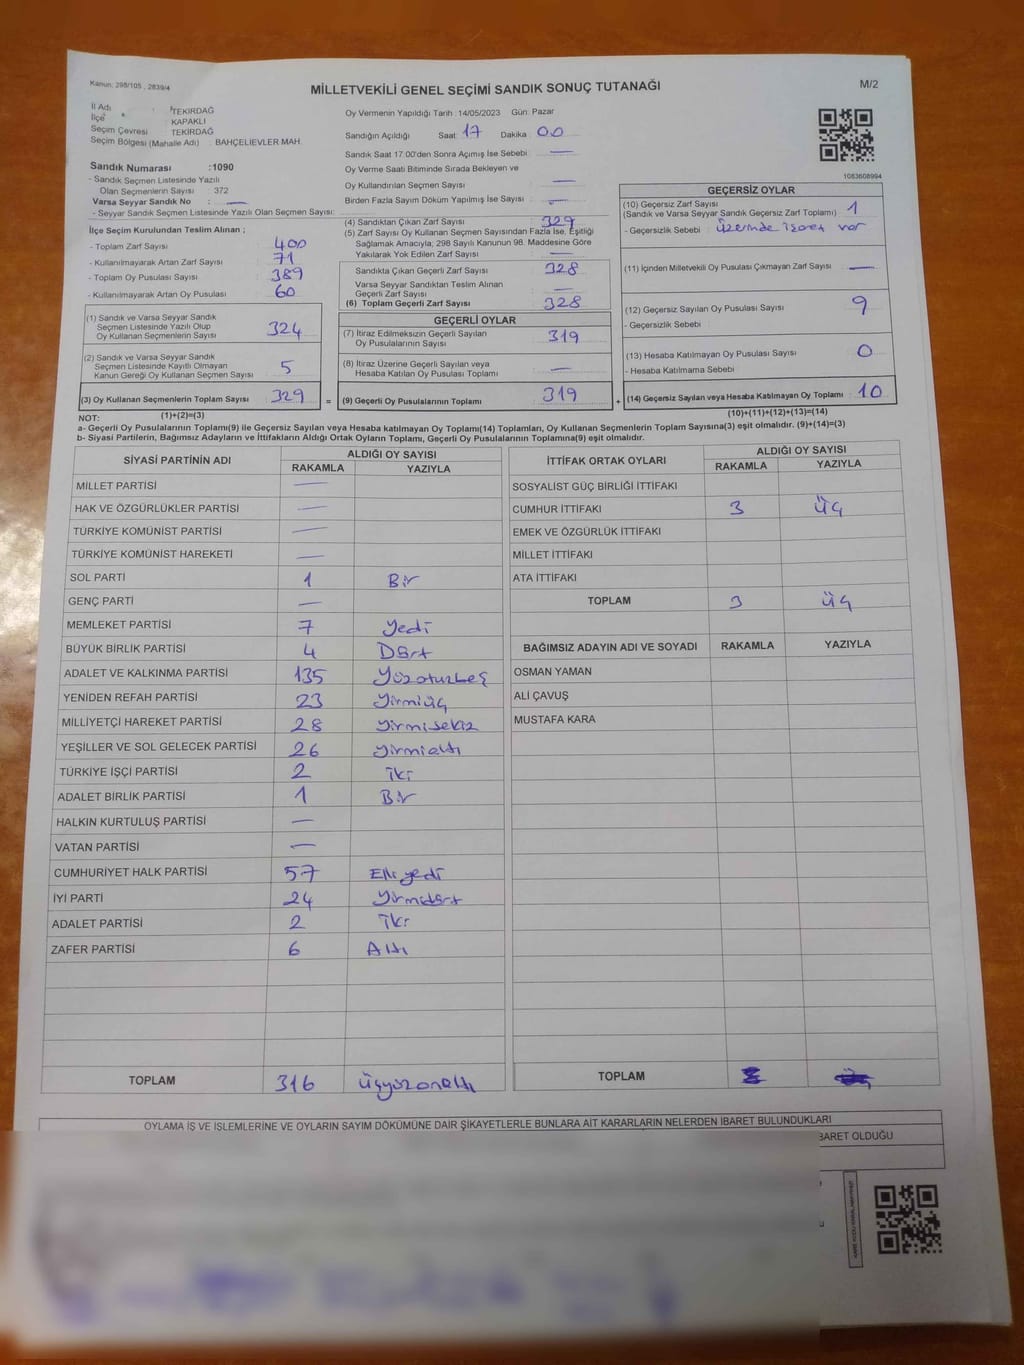 Kanun: 298/105 , 2839/4
MİLLETVEKİLİ GENEL SEÇİMİ SANDIK SONUÇ TUTANAĞI
M/2
İl Adı : TEKİRDAĞ
İlçe : KAPAKLI
Seçim Çevresi : TEKİRDAĞ
Seçim Bölgesi (Mahalle Adı) : BAHÇELİEVLER MAH.
Sandık Numarası :1090
- Sandık Seçmen Listesinde Yazılı
Olan Seçmenlerin Sayısı : 372
Varsa Seyyar Sandık No : —
- Seyyar Sandık Seçmen Listesinde Yazılı Olan Seçmen Sayısı:
İlçe Seçim Kurulundan Teslim Alınan ;
- Toplam Zarf Sayısı : 400
- Kullanılmayarak Artan Zarf Sayısı : 71
- Toplam Oy Pusulası Sayısı : 389
- Kullanılmayarak Artan Oy Pusulası : 60
(1) Sandık ve Varsa Seyyar Sandık
Seçmen Listesinde Yazılı Olup
Oy Kullanan Seçmenlerin Sayısı : 324
(2) Sandık ve Varsa Seyyar Sandık
Seçmen Listesinde Kayıtlı Olmayan
Kanun Gereği Oy Kullanan Seçmen Sayısı : 5
(3) Oy Kullanan Seçmenlerin Toplam Sayısı : 329
Oy Vermenin Yapıldığı Tarih : 14/05/2023 Gün: Pazar
Sandığın Açıldığı Saat: 17 Dakika : 00
Sandık Saat 17:00'den Sonra Açılmış İse Sebebi : —
Oy Verme Saati Bitiminde Sırada Bekleyen ve
Oy Kullandırılan Seçmen Sayısı : —
Birden Fazla Sayım Döküm Yapılmış İse Sayısı : —
(4) Sandıktan Çıkan Zarf Sayısı : 329
(5) Zarf Sayısı Oy Kullanan Seçmen Sayısından Fazla İse, Eşitliği
Sağlamak Amacıyla; 298 Sayılı Kanunun 98. Maddesine Göre
Yakılarak Yok Edilen Zarf Sayısı : —
Sandıkta Çıkan Geçerli Zarf Sayısı : 328
Varsa Seyyar Sandıktan Teslim Alınan
Geçerli Zarf Sayısı : —
(6) Toplam Geçerli Zarf Sayısı : 328
GEÇERLİ OYLAR
(7) İtiraz Edilmeksizin Geçerli Sayılan
Oy Pusulalarının Sayısı : 319
(8) İtiraz Üzerine Geçerli Sayılan veya
Hesaba Katılan Oy Pusulası Toplamı : —
= (9) Geçerli Oy Pusulalarının Toplamı : 319
1083608994
GEÇERSİZ OYLAR
(10) Geçersiz Zarf Sayısı : 1
(Sandık ve Varsa Seyyar Sandık Geçersiz Zarf Toplamı)
- Geçersizlik Sebebi : üzerinde işaret var
(11) İçinden Milletvekili Oy Pusulası Çıkmayan Zarf Sayısı : —
(12) Geçersiz Sayılan Oy Pusulası Sayısı : 9
- Geçersizlik Sebebi :
(13) Hesaba Katılmayan Oy Pusulası Sayısı : 0
- Hesaba Katılmama Sebebi :
+ (14) Geçersiz Sayılan veya Hesaba Katılmayan Oy Toplamı : 10
NOT: (1)+(2)=(3)
(10)+(11)+(12)+(13)=(14)
a- Geçerli Oy Pusulalarının Toplamı(9) ile Geçersiz Sayılan veya Hesaba katılmayan Oy Toplamı(14) Toplamları, Oy Kullanan Seçmenlerin Toplam Sayısına(3) eşit olmalıdır. (9)+(14)=(3)
b- Siyasi Partilerin, Bağımsız Adayların ve İttifakların Aldığı Ortak Oyların Toplamı, Geçerli Oy Pusulalarının Toplamına(9) eşit olmalıdır.
SİYASİ PARTİNİN ADI ALDIĞI OY SAYISI
RAKAMLA YAZIYLA
MİLLET PARTİSİ —
HAK VE ÖZGÜRLÜKLER PARTİSİ —
TÜRKİYE KOMÜNİST PARTİSİ —
TÜRKİYE KOMÜNİST HAREKETİ —
SOL PARTİ 1 Bir
GENÇ PARTİ —
MEMLEKET PARTİSİ 7 Yedi
BÜYÜK BİRLİK PARTİSİ 4 Dört
ADALET VE KALKINMA PARTİSİ 135 Yüzotuzbeş
YENİDEN REFAH PARTİSİ 23 Yirmiüç
MİLLİYETÇİ HAREKET PARTİSİ 28 Yirmisekiz
YEŞİLLER VE SOL GELECEK PARTİSİ 26 Yirmialtı
TÜRKİYE İŞÇİ PARTİSİ 2 İki
ADALET BİRLİK PARTİSİ 1 Bir
HALKIN KURTULUŞ PARTİSİ —
VATAN PARTİSİ —
CUMHURİYET HALK PARTİSİ 57 Elliyedi
İYİ PARTİ 24 Yirmidört
ADALET PARTİSİ 2 İki
ZAFER PARTİSİ 6 Altı
TOPLAM 316 Üçyüzonaltı
İTTİFAK ORTAK OYLARI ALDIĞI OY SAYISI
RAKAMLA YAZIYLA
SOSYALİST GÜÇ BİRLİĞİ İTTİFAKI
CUMHUR İTTİFAKI 3 Üç
EMEK VE ÖZGÜRLÜK İTTİFAKI
MİLLET İTTİFAKI
ATA İTTİFAKI
TOPLAM 3 Üç
BAĞIMSIZ ADAYIN ADI VE SOYADI RAKAMLA YAZIYLA
OSMAN YAMAN
ALİ ÇAVUŞ
MUSTAFA KARA
TOPLAM
OYLAMA İŞ VE İŞLEMLERİNE VE OYLARIN SAYIM DÖKÜMÜNE DAİR ŞİKAYETLERLE BUNLARA AİT KARARLARIN NELERDEN İBARET BULUNDUKLARI
BARET OLDUĞU